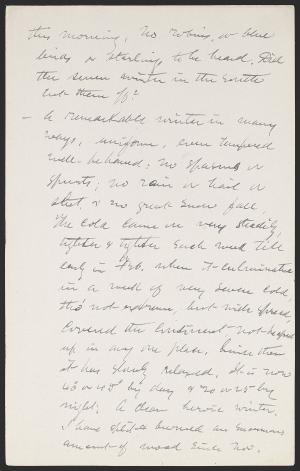 this morning. No robins, or blue
birds or starlings to be heard. Did
the severe winter in the south
cut them off?
— A remarkable winter in many
ways, uniform, even tempered
well-behaved: no spasms or
spurts; no rain or hail or
sleet, & no great snow fall,
The cold came on very steadily,
tighter & tighter each week till
early in Feb. when it culminated
in a week of very severe cold,
tho' not extreme, but wide spread,
covered the continent - not heaped
up in any one place. Since then
it has slowly relaxed. It is now
43 or 45° by day & 20 or 25 by
night. A clear heroic winter.
I have split & burned an enormous
amount of wood since Nov.